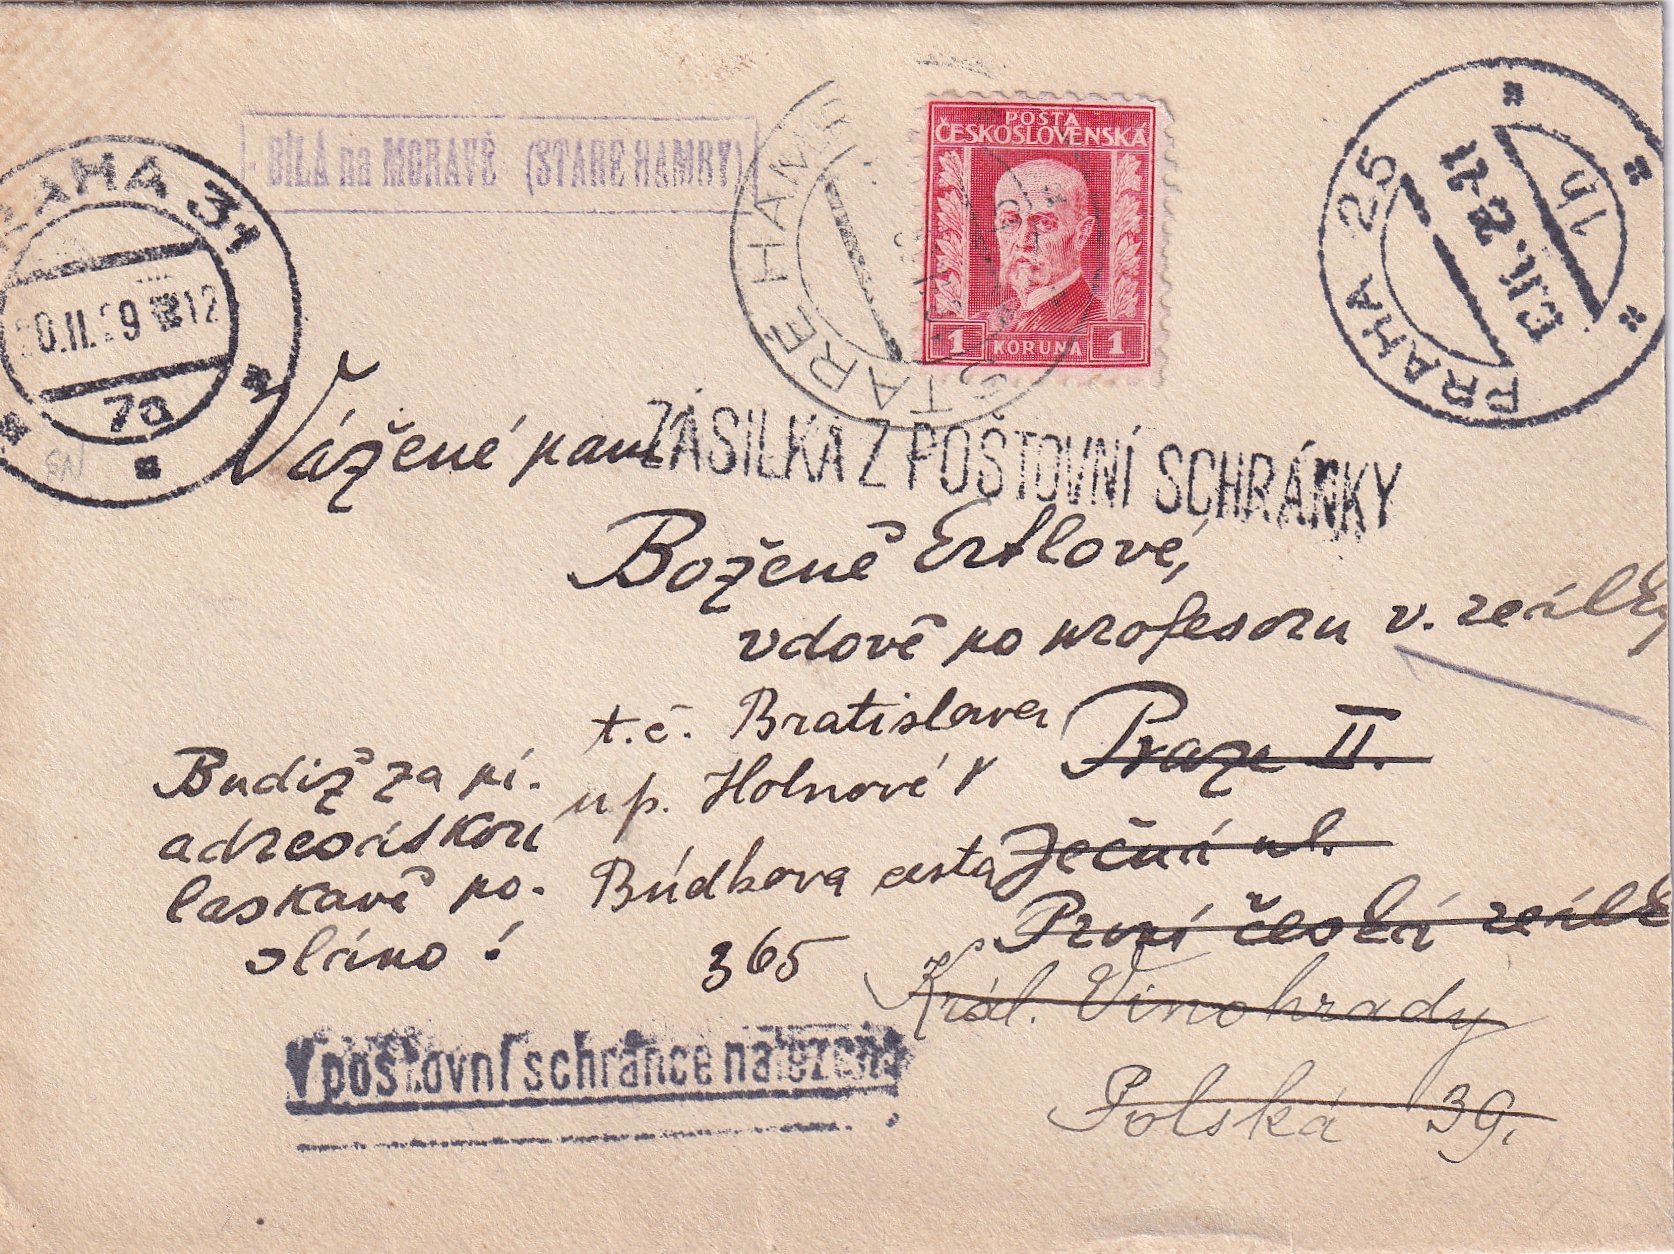 BÍLÁ na MORAVĚ (STARÉ HAMRY)
PRAHA 31
0.II.29 12
7a
STARÉ HAMRY
POŠTA
ČESKOSLOVENSKÁ
1 KORUNA 1
PRAHA 25
1h
Vážené paní
ZÁSILKA Z POŠTOVNÍ SCHRÁNKY
Boženě Ertlové,
vdově po profesoru v. reálky
t.č. Bratislava
Praze II.
u p. Holnové
Búdkova cesta
Ječná ul.
365
První česká reálka
Král. Vinohrady
Polská 39.
Budiž za pí.
adresátkou
laskavě po-
sláno!
V poštovní schránce nalezeno